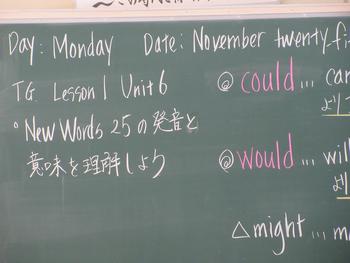 Day: Monday Date: November twenty-fi
TG Lesson 1 Unit 6
◎ could ... can
より
。New Words 25の発音と
意味を理解しよう
◎ would ... will
より
△ might ... m